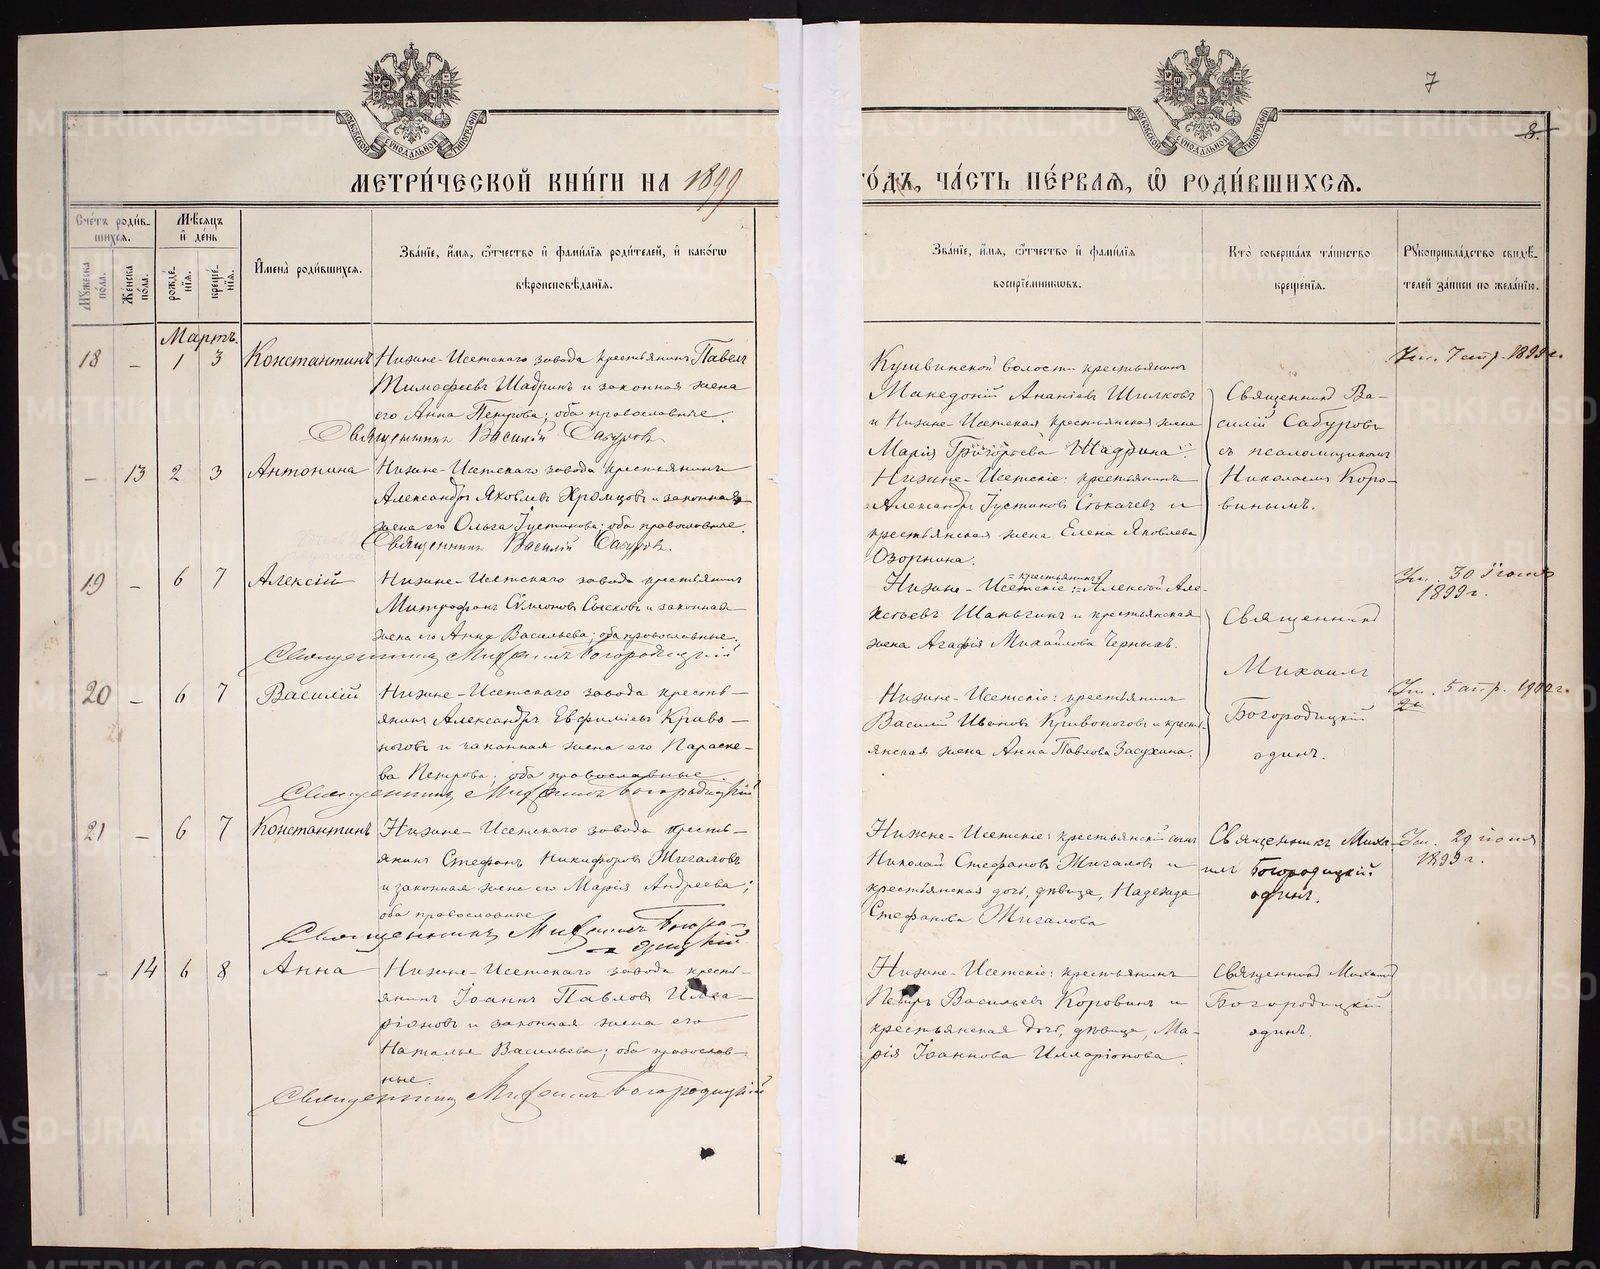 7
8.
МЕТРИ́ЧЕСКОЙ КНИ́ГИ НА 1899
ГО́ДЪ, ЧА́СТЬ ПЕ́РВАЯ, Ѡ РОДИ́ВШИХСЯ.
Сче́тъ роди́в-
шихся.
Мꙋ́жеска по́ла.
Же́нска по́ла.
Мѣ́сяцъ и҆ де́нь
рожде́нїя.
креще́нїя.
И҆мена̀ роди́вшихся.
Зва́нїе, и҆́мя, ѻ҆́тчество и҆ фами́лїя роди́телей, и҆ како́гѡ
вѣроисповѣ́данїя.
Зва́нїе, и҆́мя, ѻ҆́тчество и҆ фами́лїя
воспрїе́мникѡвъ.
Кто̀ соверша́лъ та́инство
креще́нїя.
Рꙋкоприкла́дство свидѣ́-
телей за́писи по жела́нїю.
Мартъ.
18 – 1 3 Константинъ
Нижне-Исетскаго завода крестьянинъ Павелъ
Тимофеевъ Шадринъ и законная жена
его Анна Петрова; оба православные.
Священникъ Василій Сабуровъ
Кушвинской волости крестьянинъ
Македоній Ананіевъ Шилковъ
и Нижне-Исетская крестьянская жена
Марія Григорьева Шадрина.
Священникъ Ва-
силій Сабуровъ
съ псаломщикомъ
Николаемъ Коро-
винымъ.
– 13 2 3 Антонина
Нижне-Исетскаго завода крестьянинъ
Александръ Яковлевъ Хромцовъ и законная
жена его Ольга Іустинова; оба православные.
Священникъ Василій Сабуровъ.
Нижне-Исетскіе: крестьянинъ
Александръ Іустиновъ и
крестьянская жена Елена Яковлева
Озорнина.
19 – 6 7 Алексій
Нижне-Исетскаго завода крестьянинъ
Митрофанъ Сѵмеоновъ Сысковъ и законная
жена его Анна Васильева; оба православные.
Священникъ Михаилъ Богородицкій
= крестьянинъ
Нижне-Исетскіе: = Алексѣй Але-
ксѣевъ Шаньгинъ и крестьянская
жена Агафія Михайлова Черныхъ.
Священникъ
Михаилъ
Богородицкій
одинъ.
1899 г.
20 – 6 7 Василій
Нижне-Исетскаго завода кресть-
янинъ Александръ Евфиміевъ Криво-
ноговъ и законная жена его Параске-
ва Петрова; оба православные
Священникъ Михаилъ Богородицкій
Нижне-Исетскіе: крестьянинъ
Василій Ивановъ Кривоноговъ и кресть-
янская жена Анна Павлова Засухина.
21 – 6 7 Константинъ
Нижне-Исетскаго завода кресть-
янинъ Стефанъ Никифоровъ Жигаловъ
и законная жена его Марія Андреева;
оба православные
Священникъ Михаилъ Богоро-
дицкій
Нижне-Исетскіе: крестьянскій сынъ
Николай Стефановъ Жигаловъ и
крестьянская дочь, дѣвица, Надежда
Стефанова Жигалова
Священникъ Миха-
илъ Богородицкій
одинъ.
1899 г.
– 14 6 8 Анна
Нижне-Исетскаго завода кресть-
янинъ Іоаннъ Павловъ Илла-
ріоновъ и законная жена его
Наталья Васильева; оба православ-
ные.
Священникъ Михаилъ Богородицкій
Нижне-Исетскіе: крестьянинъ
Петръ Васильевъ Коровинъ и
крестьянская дочь, дѣвица, Ма-
рія Іоаннова Илларіонова.
Священникъ Михаилъ
Богородицкій
одинъ.
METRIKI.GASO-URAL.RU